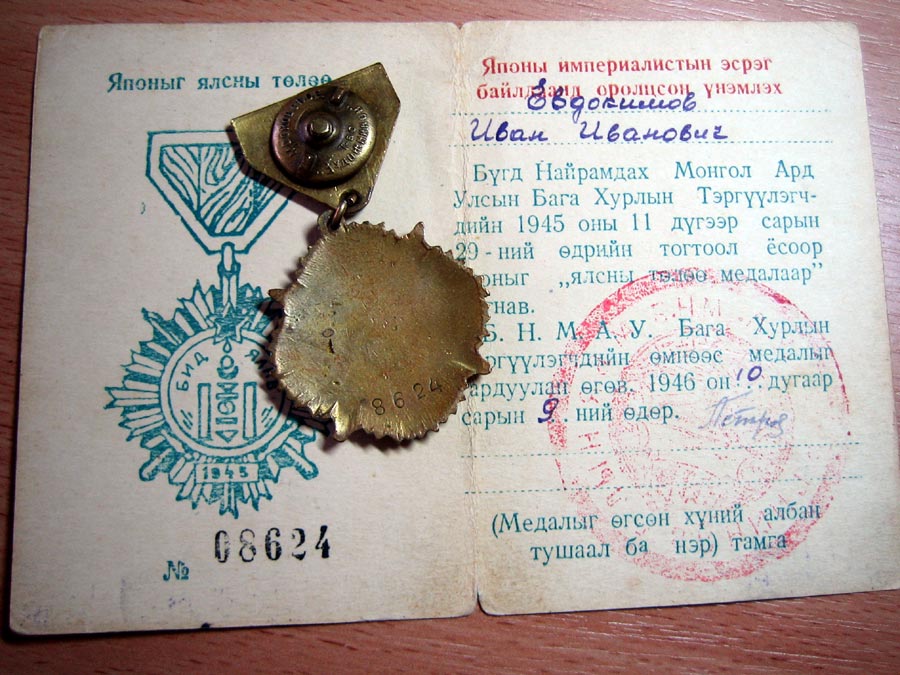 Японыг ялсны төлөө
БИД
1945
№ 08624
8624
Японы империалистын эсрэг
байлдаанд оролцсон үнэмлэх
Евдокимов
Иван Иванович
Бүгд Найрамдах Монгол Ард
Улсын Бага Хурлын Тэргүүлэгч-
дийн 1945 оны 11 дүгээр сарын
29-ний өдрийн тогтоол ёсоор
„ялсны төлөө медалаар”
Б. Н. М. А. У. Бага Хурлын
өмнөөс медалыг
өгөв. 1946 он 10 дугаар
сарын 9 ний өдөр.
Петров
(Медалыг өгсөн хүний албан
тушаал ба нэр) тамга